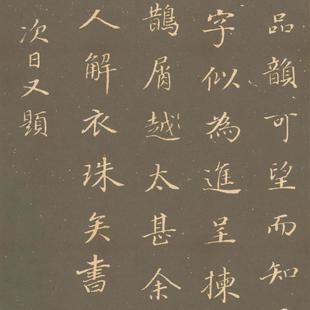 品韻可望而知
字似為進呈揀
鵲屑越太甚余
人解衣珠矣書
次日又題